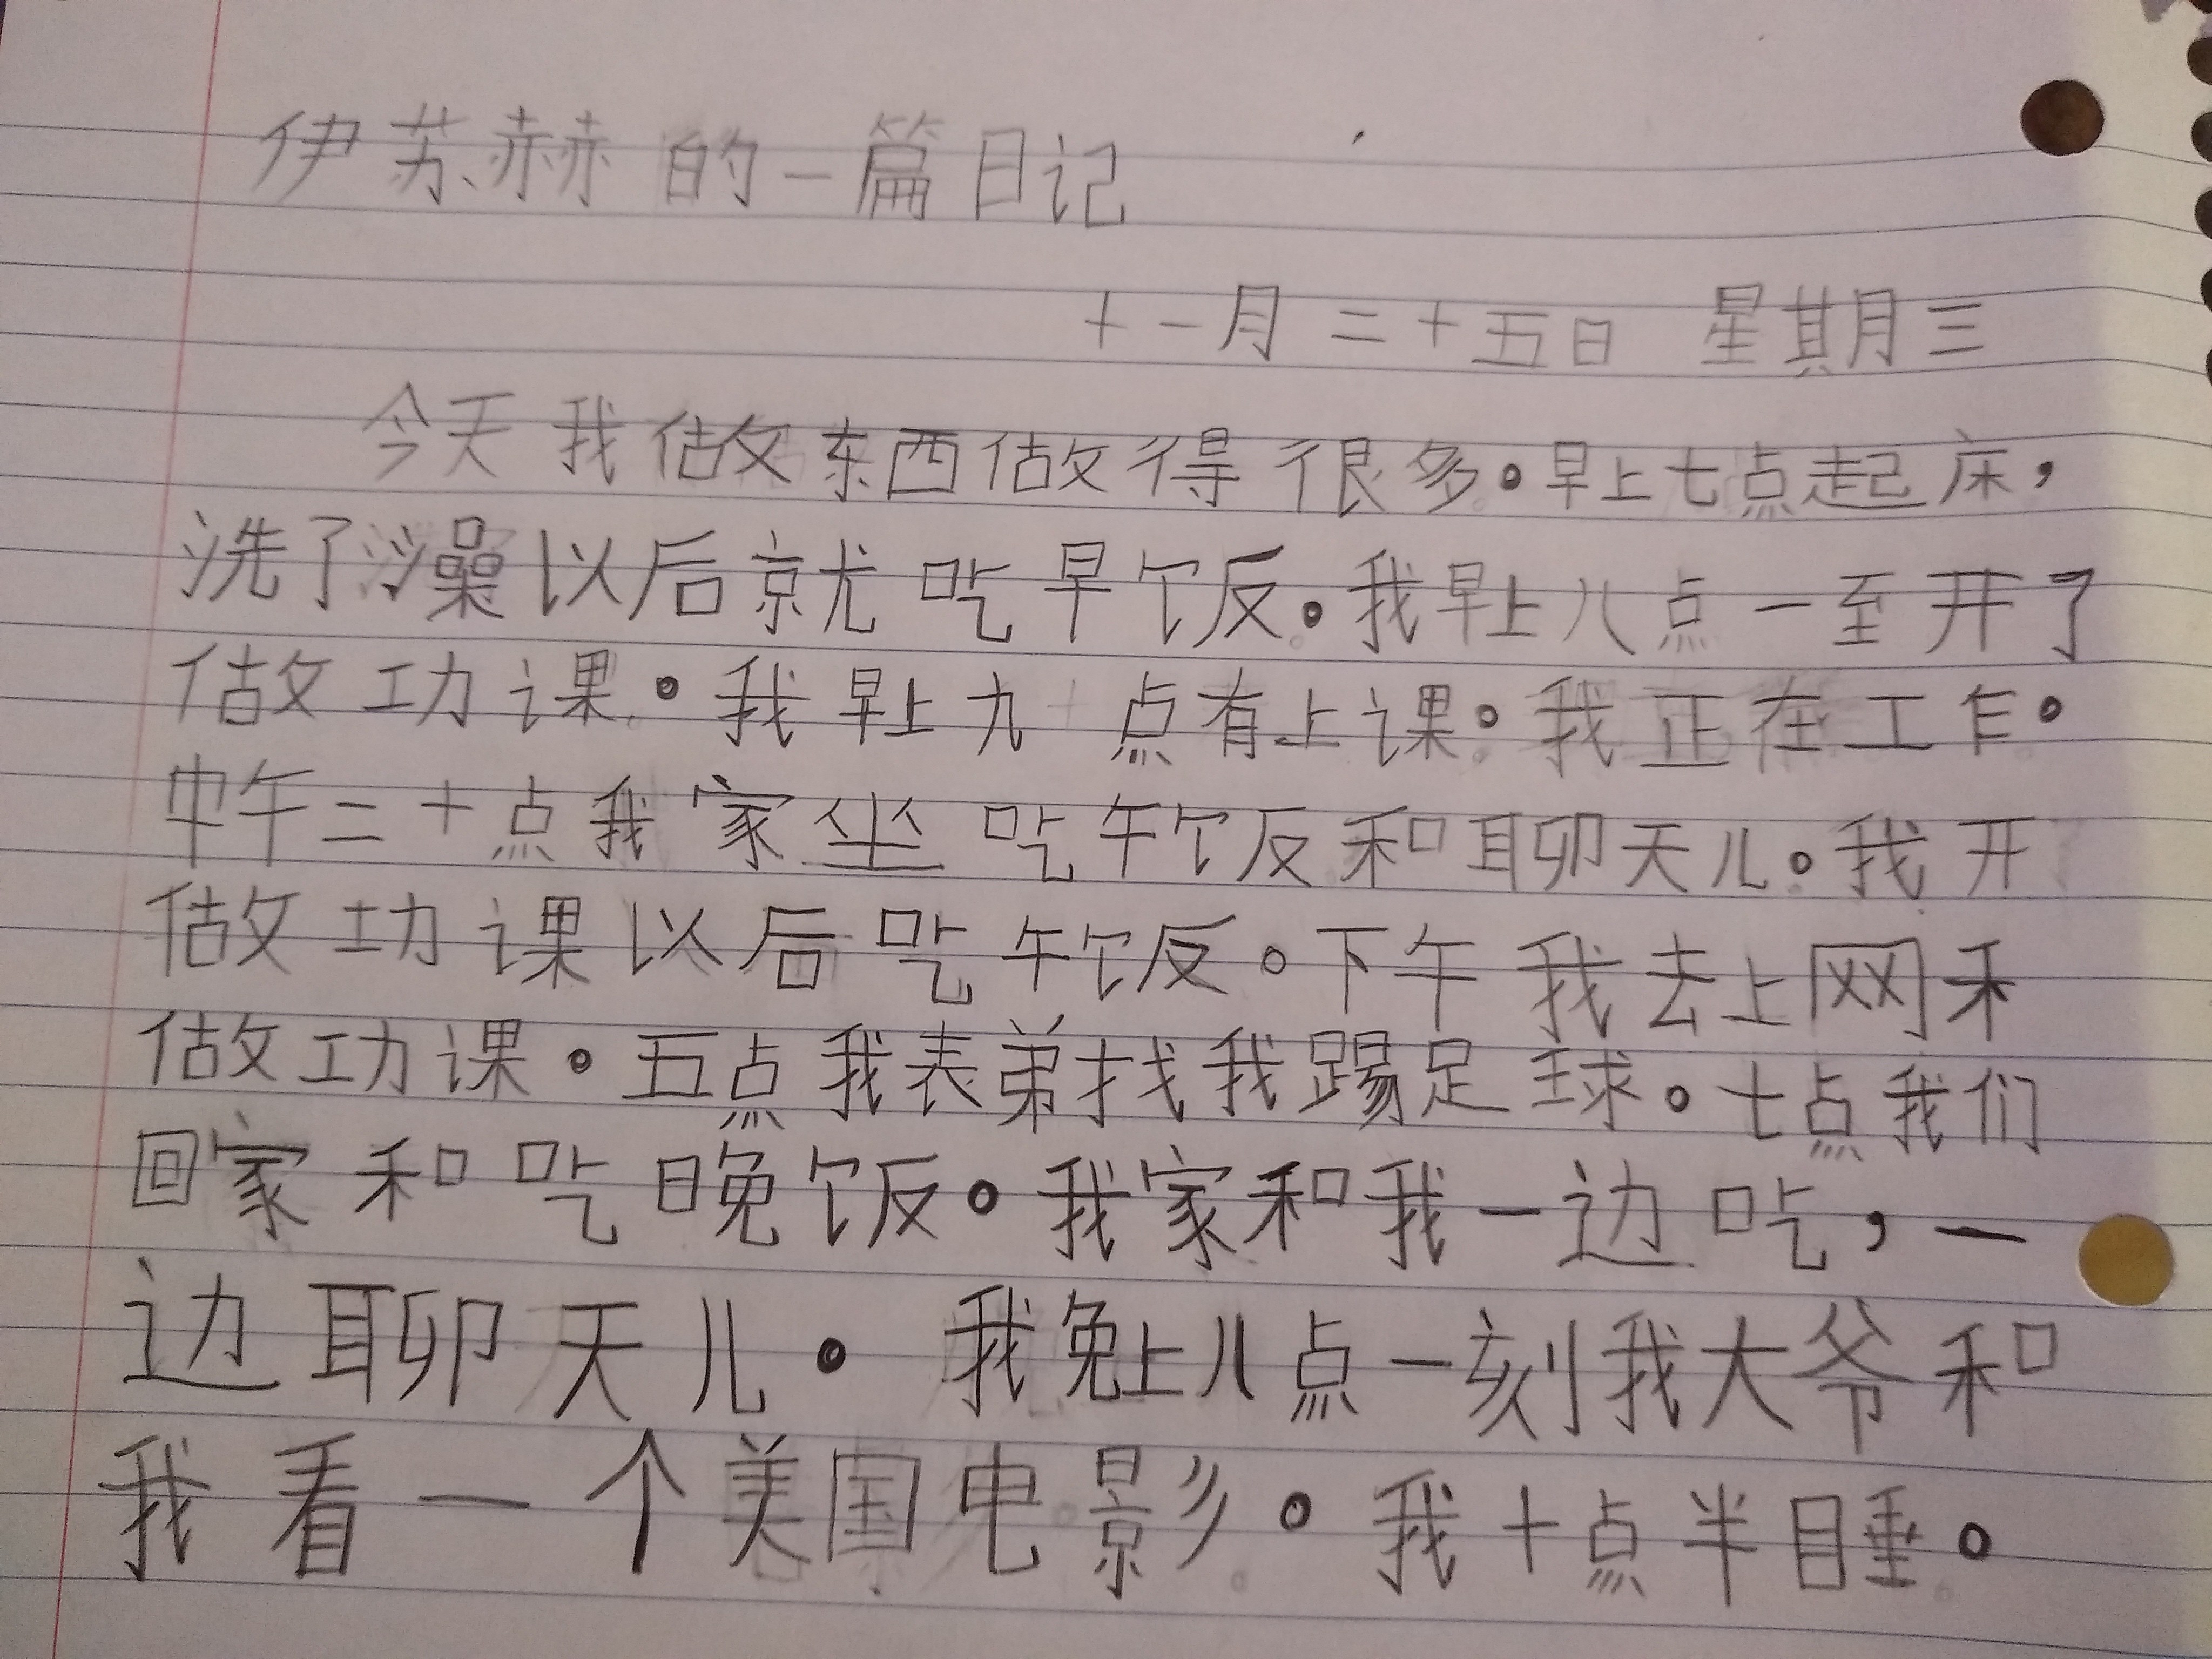 伊苏赫的一篇日记
十一月二十五日 星期三
今天我做东西做得很多。早上七点起床，
洗了澡以后就吃早饭。我早上八点一至开了
做功课。我早上九点有上课。我正在工乍。
中午二十点我家坐吃午饭和聊天儿。我开
做功课以后吃午饭。下午我去上网禾
做功课。五点我表弟找我踢足球。七点我们
回家和吃晚饭。我家和我一边吃，一
边聊天儿。我免上八点一刻我大爷和
我看一个美国电影。我十点半睡。